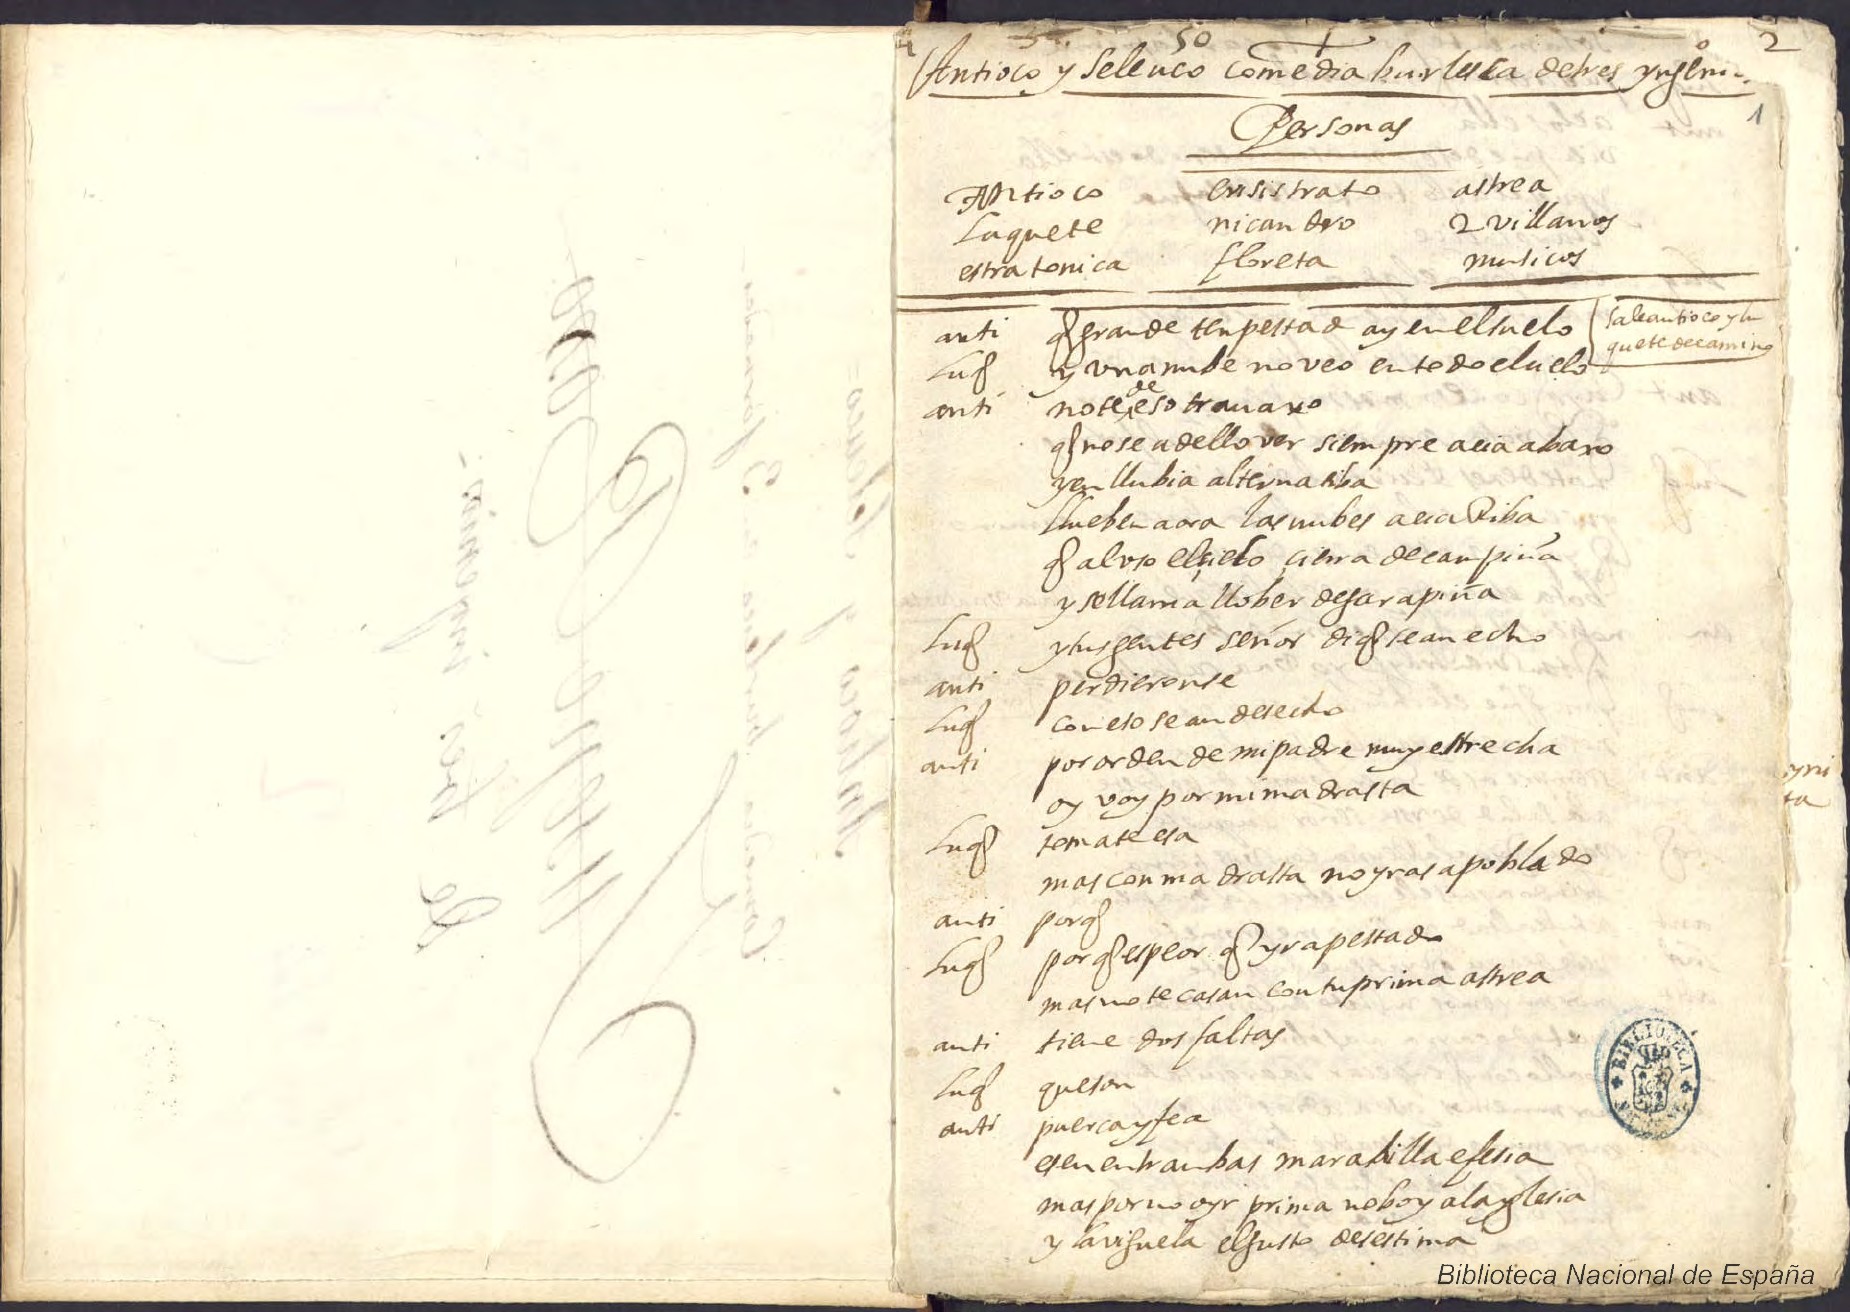 50
2
Antioco y Seleuco comedia burlesca de tres yngenios
1
Personas
Antioco erisistrato astrea
Luquete nicandro 2 villanos
estratonica floreta musicos
anti q grande tenpestad ay en el suelo
sale antioco y lu
quete de camino
Luq y una nube no veo en todo el cielo
anti no te de eso travaxo
q no se a de llover siempre acia abaxo
y en llubia alternatiba
llueben aora las nubes acia Riba
q al uso el cielo cierra de canpiña
y se llama llober de garapiña
Luq y tus gentes señor di q se an echo
anti perdieronse
Luq con eso se an desecho
anti por orden de mi padre muy estrecha
oy voy por mi madrasta
Luq tomate esa
mas con madrasta no yras a poblado
anti porq
Luq porq es peor q yr apestado
mas no te casan con tu prima astrea
anti tiene dos faltas
Luq que son
anti puerca y fea
es en entranbas marabilla efesia
mas por no oyr prima no boy a la yglesia
y la viguela el gusto desestima
BIBLIOTECA
Biblioteca Nacional de España